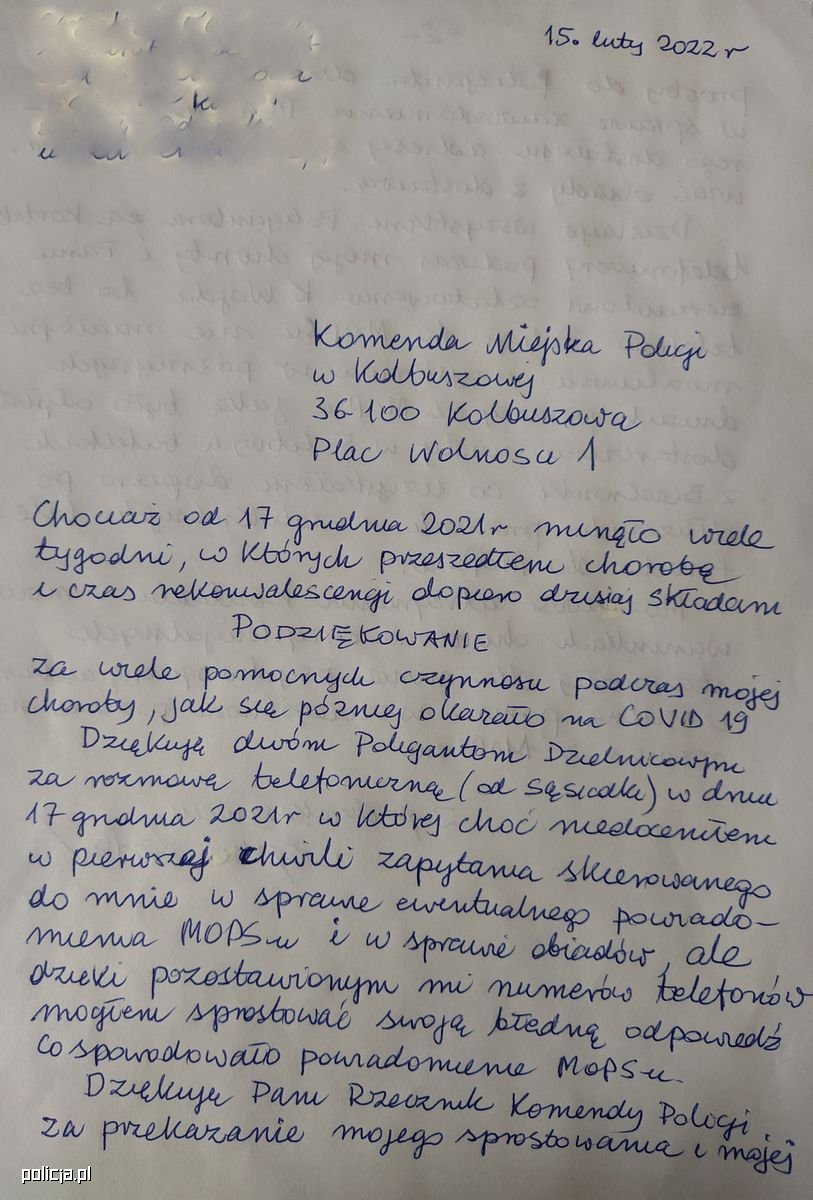 15. luty 2022 r
Komenda Miejska Policji
w Kolbuszowej
36-100 Kolbuszowa
Plac Wolności 1
Chociaż od 17 grudnia 2021r minęło wiele
tygodni, w których przeszedłem chorobę
i czas rekonwalescencji dopiero dzisiaj składam
PODZIĘKOWANIE
za wiele pomocnych czynności podczas mojej
choroby, jak się później okazało na COVID 19
Dziękuję dwóm Policjantom Dzielnicowym
za rozmowę telefoniczną (od sąsiadki) w dniu
17 grudnia 2021r w której choć niedoceniłem
w pierwszej chwili zapytania skierowanego
do mnie w sprawie ewentualnego powiado-
mienia MOPS-u i w sprawie obiadów, ale
dzięki pozostawionym mi numerów telefonów
mogłem sprostować swoją błędną odpowiedź
co spowodowało powiadomienie MOPS-u.
Dziękuję Pani Rzecznik Komendy Policji
za przekazanie mojego sprostowania i mojej
policja.pl